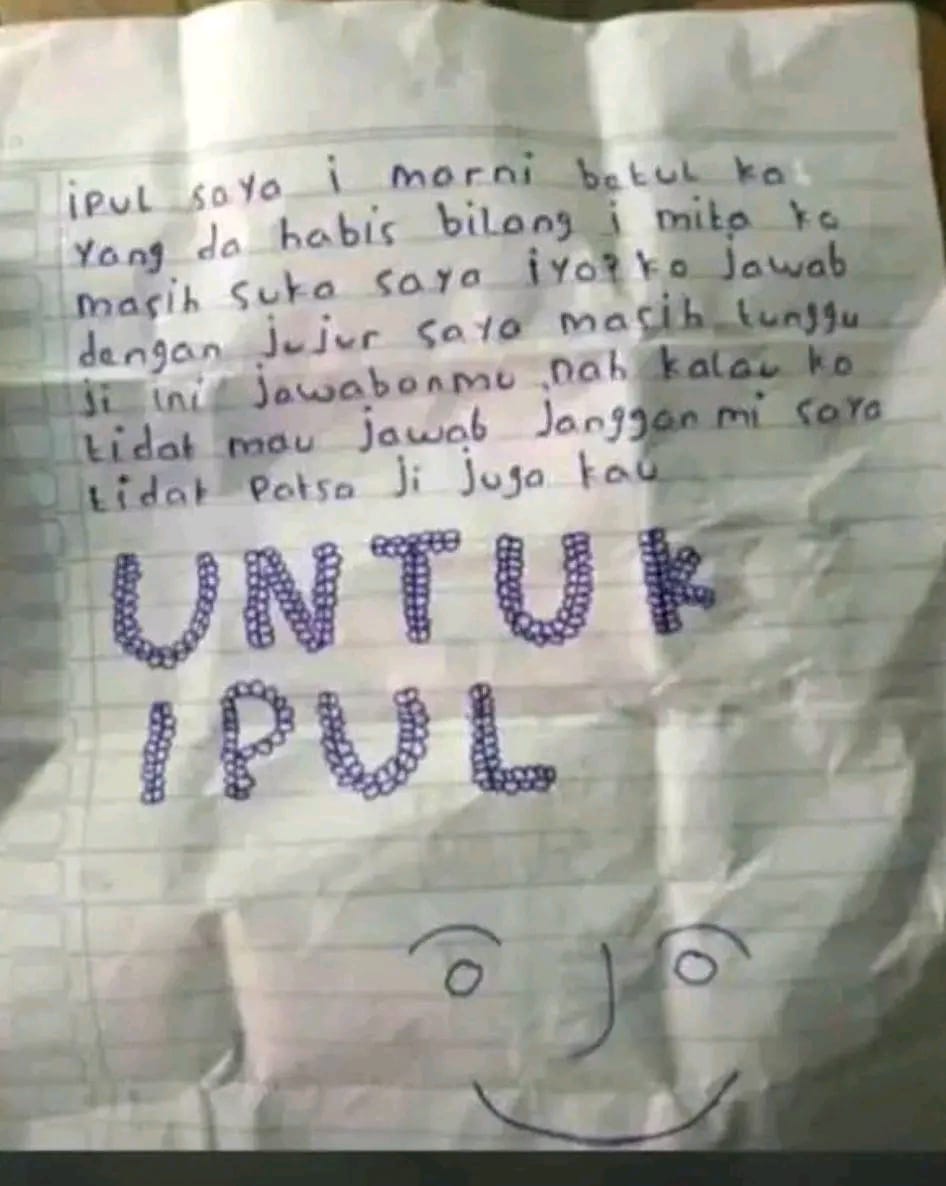 ipul saya i marni betul ka
yang da habis bilang i mita ko
masih suka saya iyo? ko jawab
dengan jujur saya masih tunggu
ji ini jawabanmu, nah kalau ko
tidak mau jawab janggan mi saya
tidak paksa ji juga kau
UNTUK
IPUL